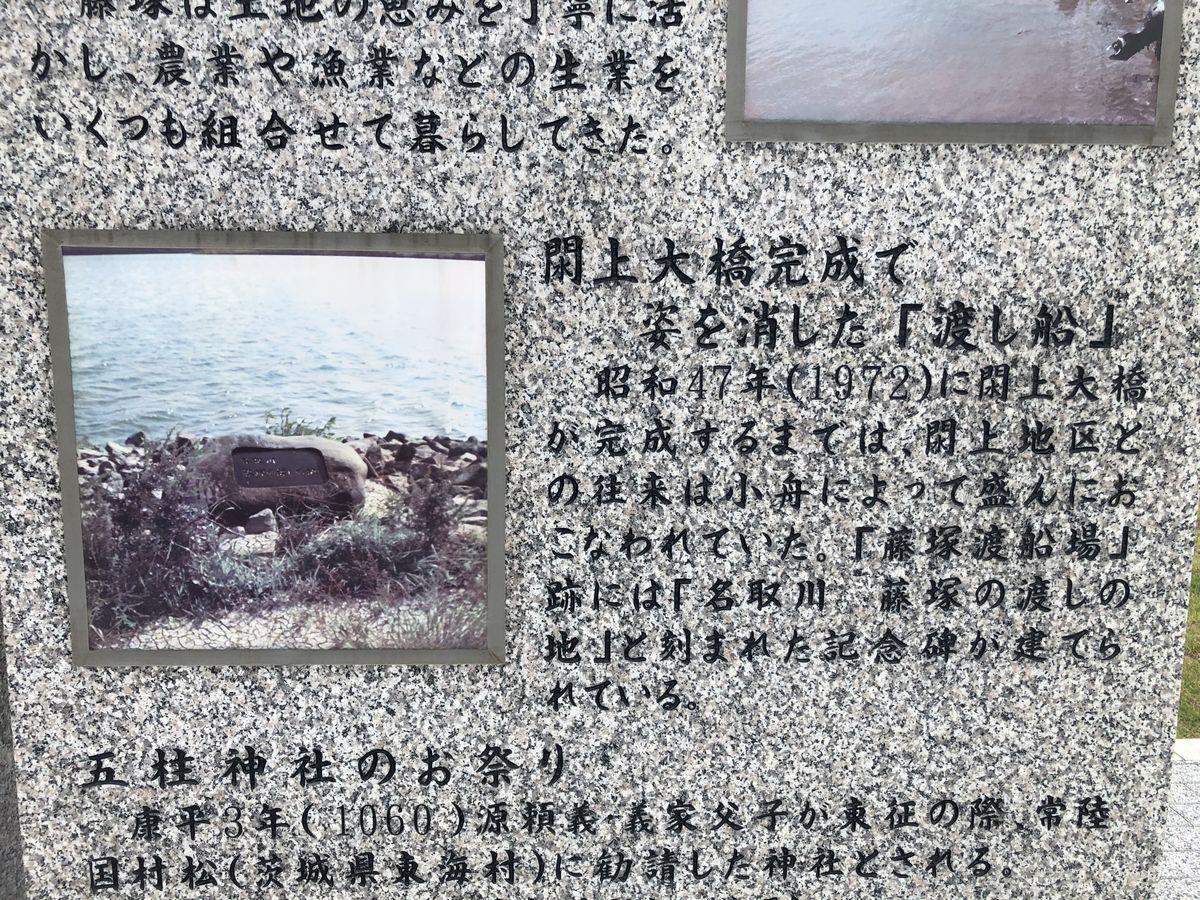 藤塚は土地の恵みを丁寧に活
かし、農業や漁業などの生業を
いくつも組合せて暮らしてきた。
閖上大橋完成で
姿を消した「渡し船」
昭和47年(1972)に閖上大橋
が完成するまでは、閖上地区と
の往来は小舟によって盛んにお
こなわれていた。「藤塚渡船場」
跡には「名取川 藤塚の渡しの
地」と刻まれた記念碑が建てら
れている。
五柱神社のお祭り
康平3年(1060)原頼義・義家父子が東征の際、常陸
国村松(茨城県東海村)に勧請した神社とされる。